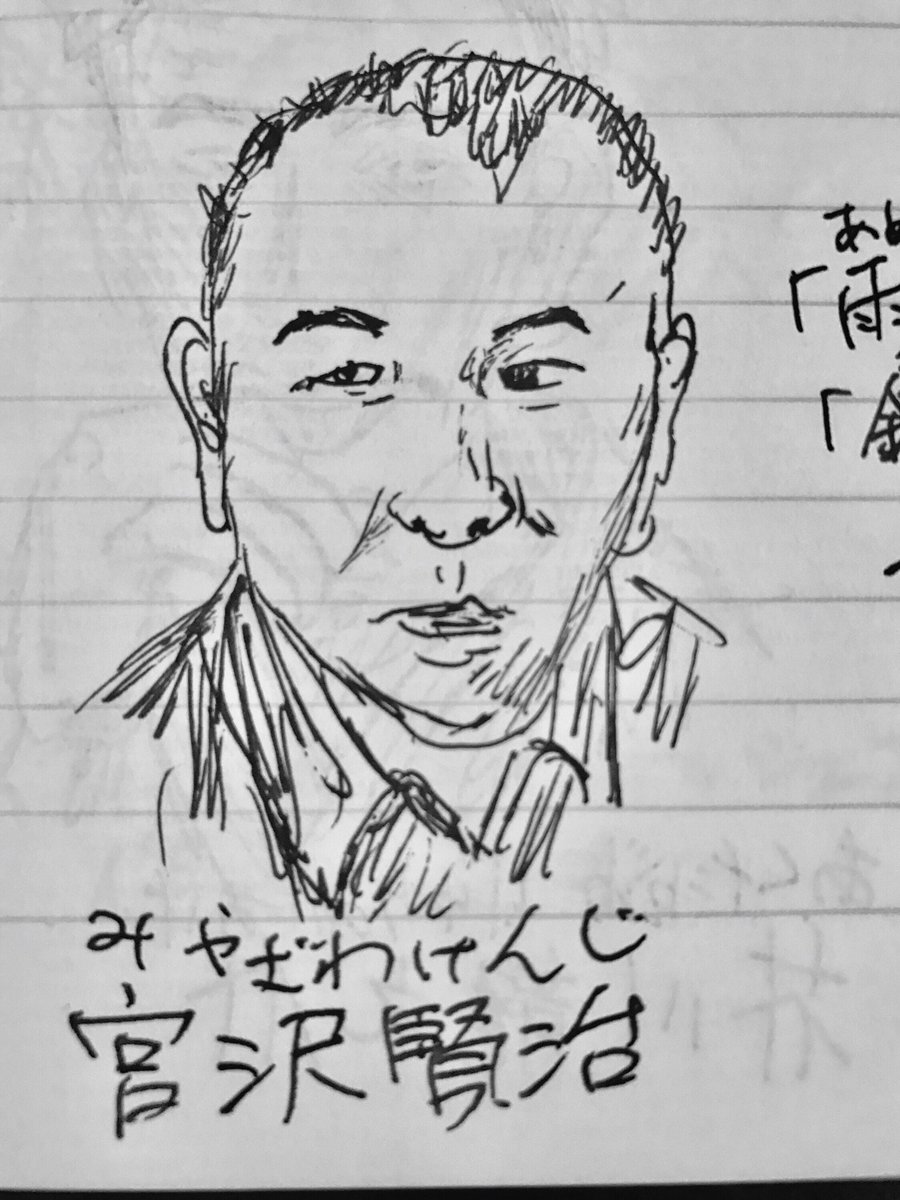 みやざわけんじ
宮沢賢治
あめ
「雨
「銀